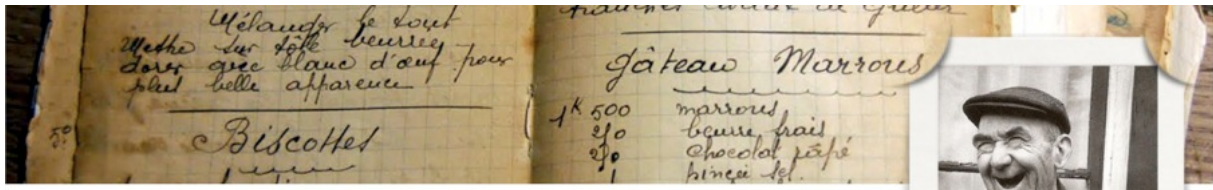 Mélanger le tout
Mettre sur tôle beurrée
dorer avec blanc d'œuf pour
plus belle apparence
Biscottes
tranches de
gâteau Marrons
1K 500 marrons
beurre frais
chocolat râpé
1 pincée sel